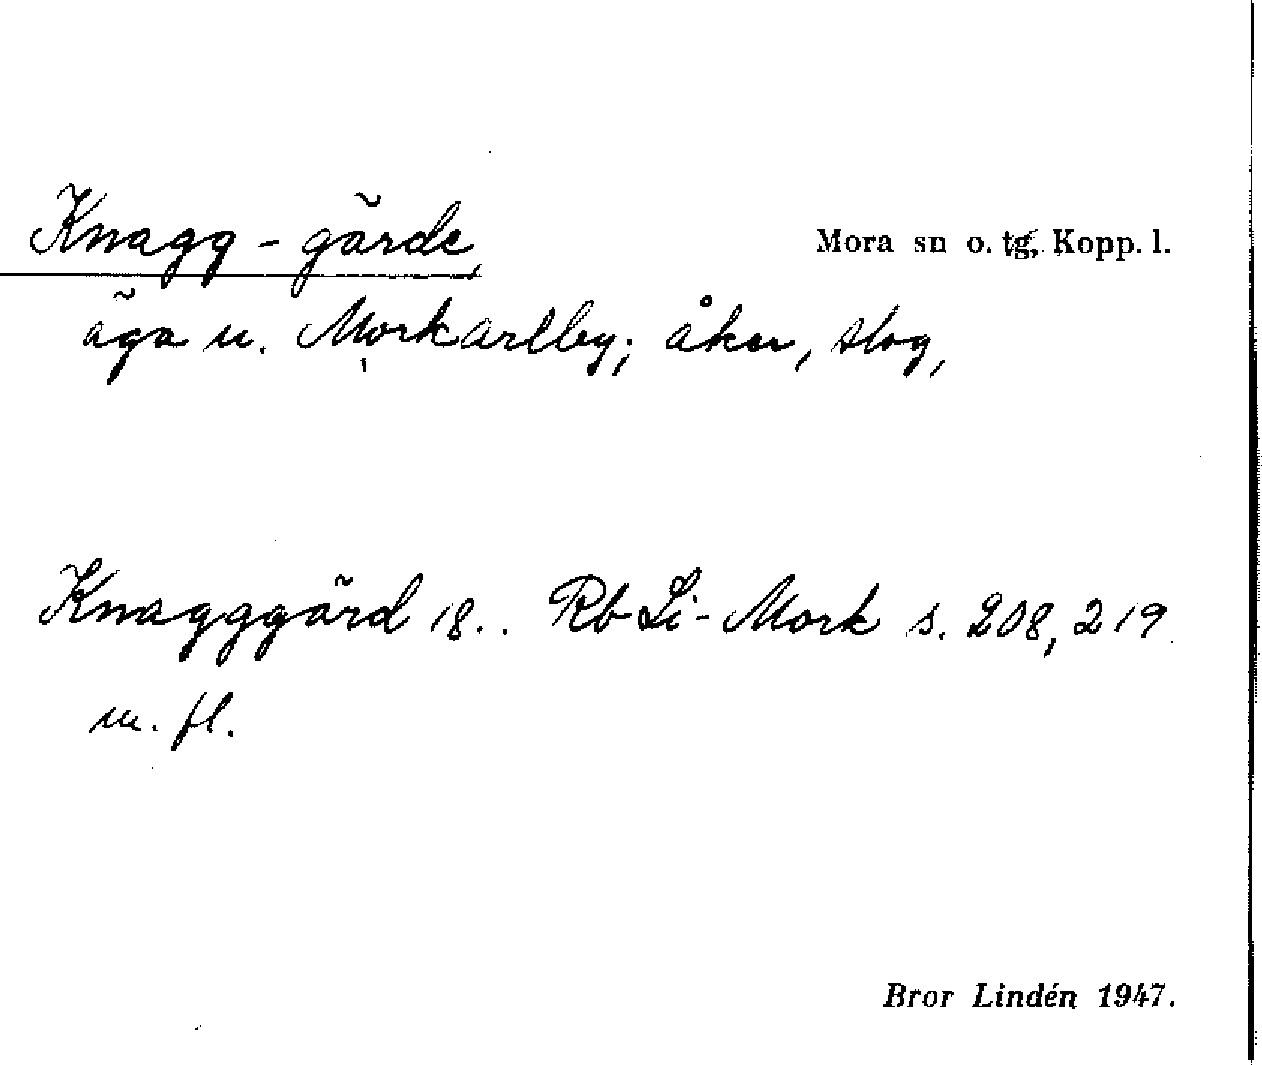 Knagg-gärde,
Mora sn o. tg, Kopp. l.
äga u. Morkarlby; åker, slog,
Knagggärd 18.. Rb Li-Mork s. 208, 219
m. fl.
Bror Lindén 1947.